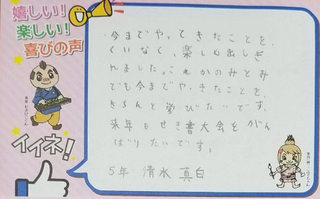 嬉しい!
楽しい!
喜びの声
イイネ!
今までやってきたことを、
くいなく、楽しく出しき
れました。これからのみとみ
でも今までやってきたことを、
きちんと学びたいです。
来年もせき書大会をがん
ばりたいです。
5年 清水 真白